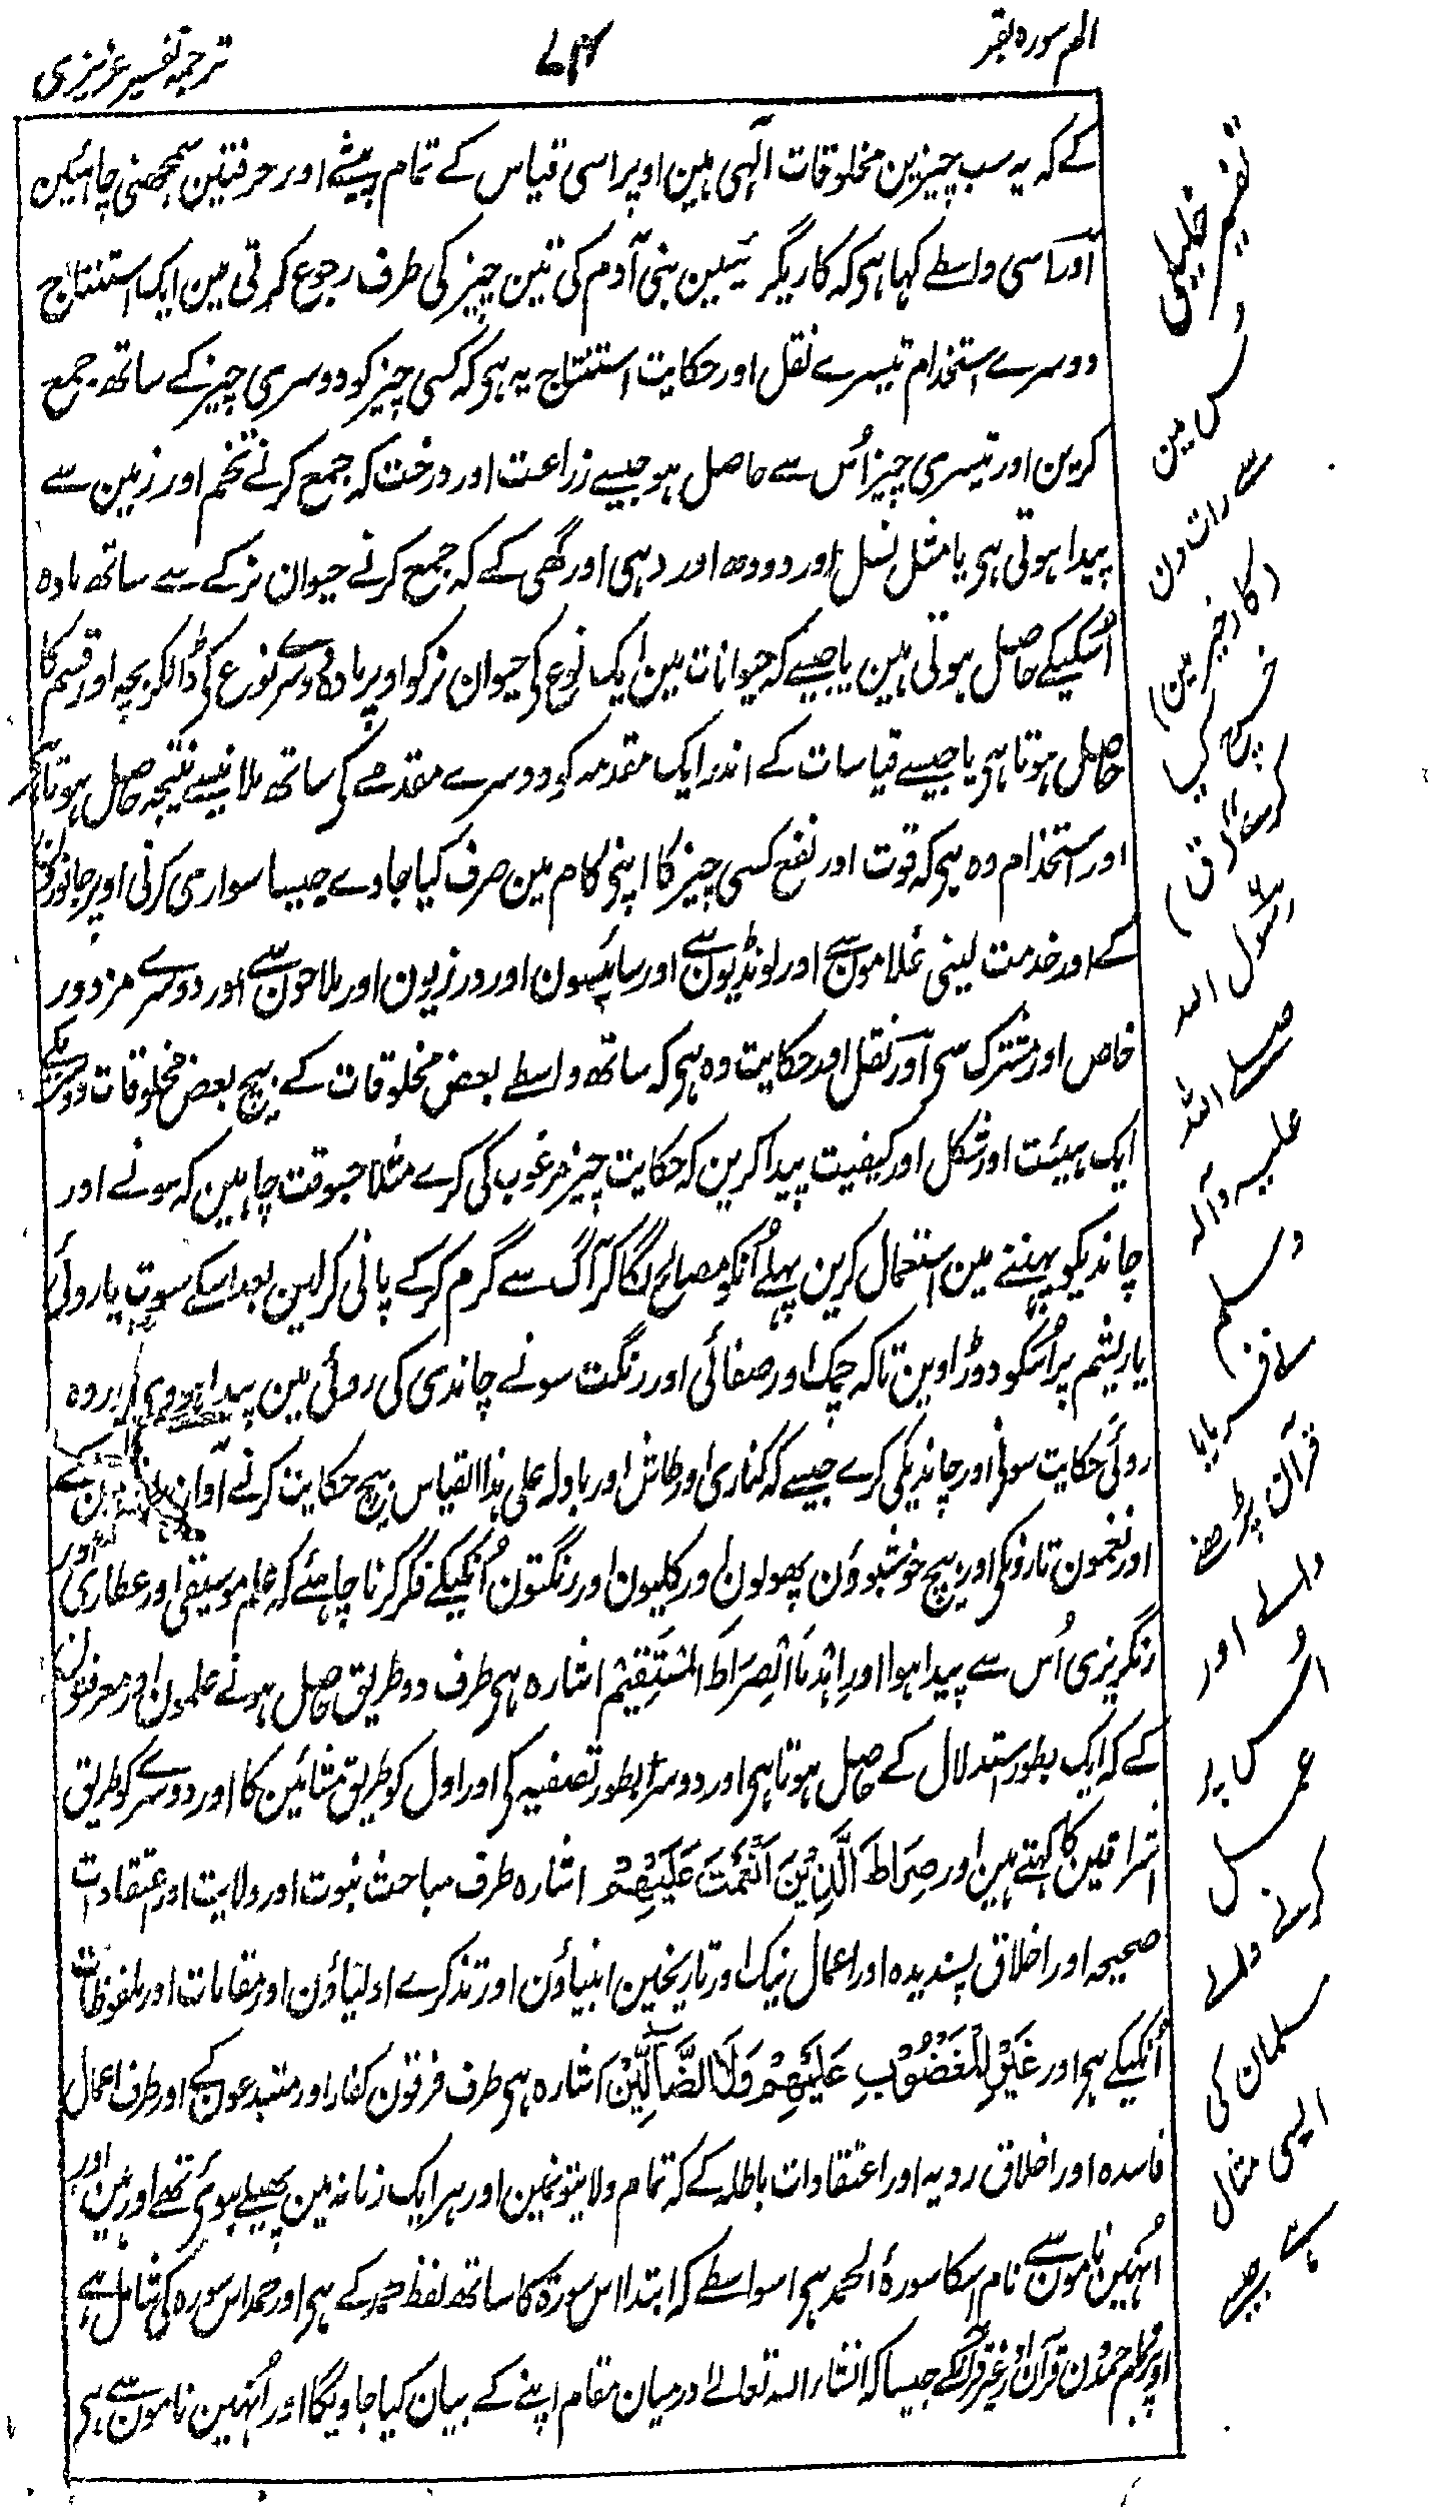 الم سورہ بقر
۷۴
ترجمہ تفسیر عزیزی
کے کہ یہ سب چیزین مخلوقات الٰہی ہین اوپر اسی قیاس کے تمام پیشے اور حرفتین سمجھنی چاہئین
اور اسی واسطے کہا ہی کہ کاریگر ئیین بنی آدم کی تین چیز کی طرف رجوع کرتی ہین ایک استنتاج
دوسرے استخدام تیسرے نقل اور حکایت استنتاج یہ ہی کہ کسی چیز کو دوسری چیز کے ساتھ جمع
کرین اور تیسری چیز اُس سے حاصل ہو جیسے زراعت اور درخت کہ جمع کرنے تخم اور زمین سے
پیدا ہوتی ہی یا مثل نسل اور دودھ اور دہی اور گھی کے کہ جمع کرنے حیوان نر کے سے ساتھ مادہ
اُسکیکے حاصل ہوتی ہین یا جیسے کہ حیوانات مین ایک نوع کی حیوان نر کو اوپر مادہ دوسرے نوع کی ڈالکر بچہ اور قسم کا
حاصل ہوتا ہی یا جیسے قیاسات کے اندر ایک مقدمہ کو دوسرے مقدمے کی ساتھ ملانیسے نتیجہ حاصل ہوتا ہی
اور استخدام وہ ہی کہ قوت اور نفع کسی چیز کا اپنی کام مین صرف کیا جاوے جیسا سواری کرنی اوپر جانورون
کے اور خدمت لینی غلامون سے اور لونڈیون سے اور سائیسون اور درزیون اور ملاحون سے اور دوسرے مزدور
خاص اور مشترک سی اور نقل اور حکایت وہ ہی کہ ساتھ واسطے بعض مخلوقات کے بیچ بعض مخلوقات دوسریکے
ایک ہیئت اور شکل اور کیفیت پیدا کرین کہ حکایت چیز مرغوب کی کرے مثلا جسوقت چاہین کہ سونے اور
چاندیکو پہننے مین استعمال کرین پہلے اُنکو مصالح لگا کر آگ سے گرم کر کے پانی کر لین بعد اسکے سوت یا روئی
یا ریشم پر اُسکو دوڑاوین تاکہ چمک اور صفائی اور رنگت سونے چاندی کی روئی مین پیدا ہووی اور وہ
روئی حکایت سونی اور چاندیکی کرے جیسے کہ کناری اور طاش اور بادلہ علی ہذا القیاس بیچ حکایت کرنے کے
اور نغمون تارونکی اور بیچ خوشبوؤن پھولون اور کلیون اور رنگتون اُنکیکے فکر کرنا چاہئے کہ علم موسیقی اور عطاری اور
رنگریزی اُس سے پیدا ہوا اور اِہْدِنَا الصِّرَاطَ الْمُسْتَقِیْمَ اشارہ ہی طرف دو طریق حاصل ہونے علمون اور معرفتون
کے کہ ایک بطور استدلال کے حاصل ہوتا ہی اور دوسرا بطور تصفیہ کی اور اول کو طریق مشائین کا اور دوسرے کو طریق
اشراقین کا کہتے ہین اور صِرَاطَ الَّذِیْنَ اَنْعَمْتَ عَلَیْہِمْ اشارہ طرف مباحث نبوت اور ولایت اور اعتقادات
صحیحہ اور اخلاق پسندیدہ اور اعمال نیک اور تاریخین انبیاؤن اور تذکرے اولیاؤن اور مقامات اور ملفوظات
اُنکیکے ہی اور غَیْرِ الْمَغْضُوْبِ عَلَیْہِمْ وَلَا الضَّآلِّیْنَ اشارہ ہی طرف فرقون کفار اور مبتدعون کے اور طرف اعمال
فاسدہ اور اخلاق ردیہ اور اعتقادات باطلہ کے کہ تمام ولایتونمین اور ہر ایک زمانہ مین پھیلے ہوئی تھے اور ہین اور
اُنہین نامون سے نام اسکا سورۂ الحمد ہی اسواسطے کہ ابتدا اس سورۃ کا ساتھ لفظ حمد کے ہی اور حمد اس سورہ کی شامل ہے
حمدون قرآن اور غیر قرآن کے جیسا کہ انشاء اللہ تعالےٰ درمیان مقام اپنے کے بیان کیا جاویگا اور اُنہین نامون سے ہی
تفہیم خلیلی
س مین
رات دن
کار خیر مین
خرچ کی
کرے
رسول اللہ
صلے اللہ
علیہ وآلہ
وسلم
نے فرمایا
قرآن پڑھنے
والے اور
اُس پر
عمل
کرنے والے
مسلمان کی
ایسی مثال
ہے جیسے